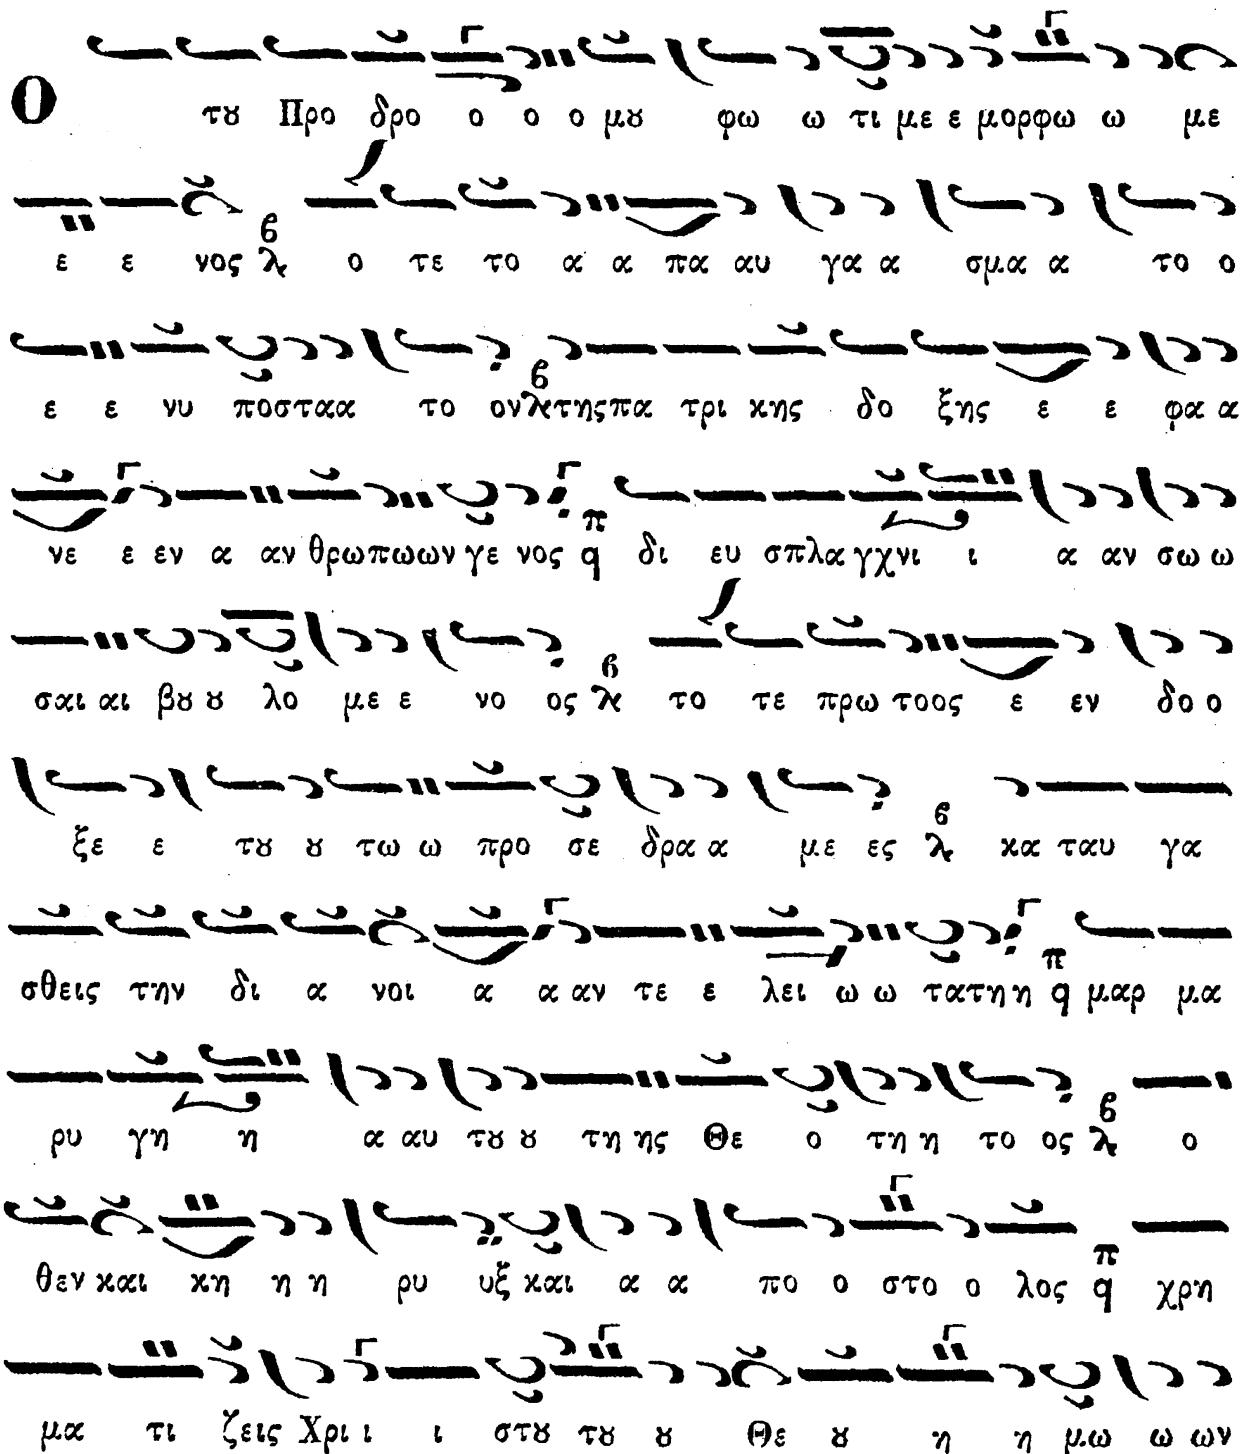 Ο τȣ Προ δρο ο ο ο μȣ φω ω τι με ε μορφω ω με
ε ε νος β λ ο τε το α α πα αυ γα α σμα α το ο
ε ε νυ ποσταα το ον β λ της πα τρι κης δο ξης ε ε φα α
νε ε εν α αν θρωπωων γε νος π q δι ευ σπλα γχνι ι α αν σω ω
σαι αι βȣ ȣ λο με ε νο ος β λ το τε πρω τοος ε εν δο ο
ξε ε τȣ ȣ τω ω προ σε δρα α με ες β λ κα ταυ γα
σθεις την δι α νοι α α αν τε ε λει ω ω τατη η π q μαρ μα
ρυ γη η α αυ τȣ ȣ τη ης Θε ο τη η το ος β λ ο
θεν και κη η η ρυ υξ και α α πο ο στο ο λος π q χρη
μα τι ζεις Χρι ι ι στȣ τȣ ȣ Θε ȣ η η μω ω ων